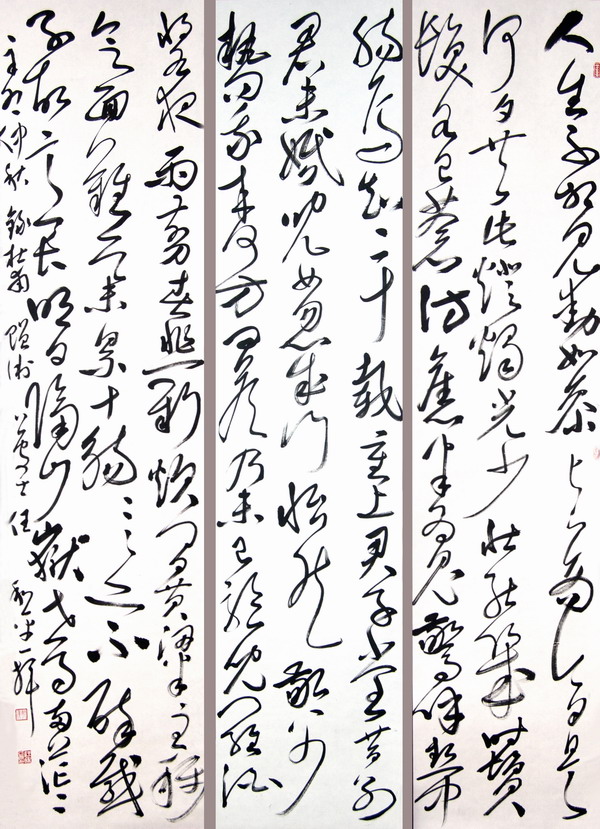 人生不相見動如參與商今夕
何夕共此燈燭光少壯能幾時鬢
髮各已蒼訪舊半為鬼驚呼熱中
腸焉知二十載重上君子堂昔別
君未婚兒女忽成行怡然敬父
執問我來何方問答乃未已驅兒羅酒
漿夜雨剪春韭新炊間黃粱主稱
會面難一舉累十觴〻〻亦不醉感
子故意長明日隔山嶽世事兩茫〻
卯仲秋錄杜甫贈衛八處士